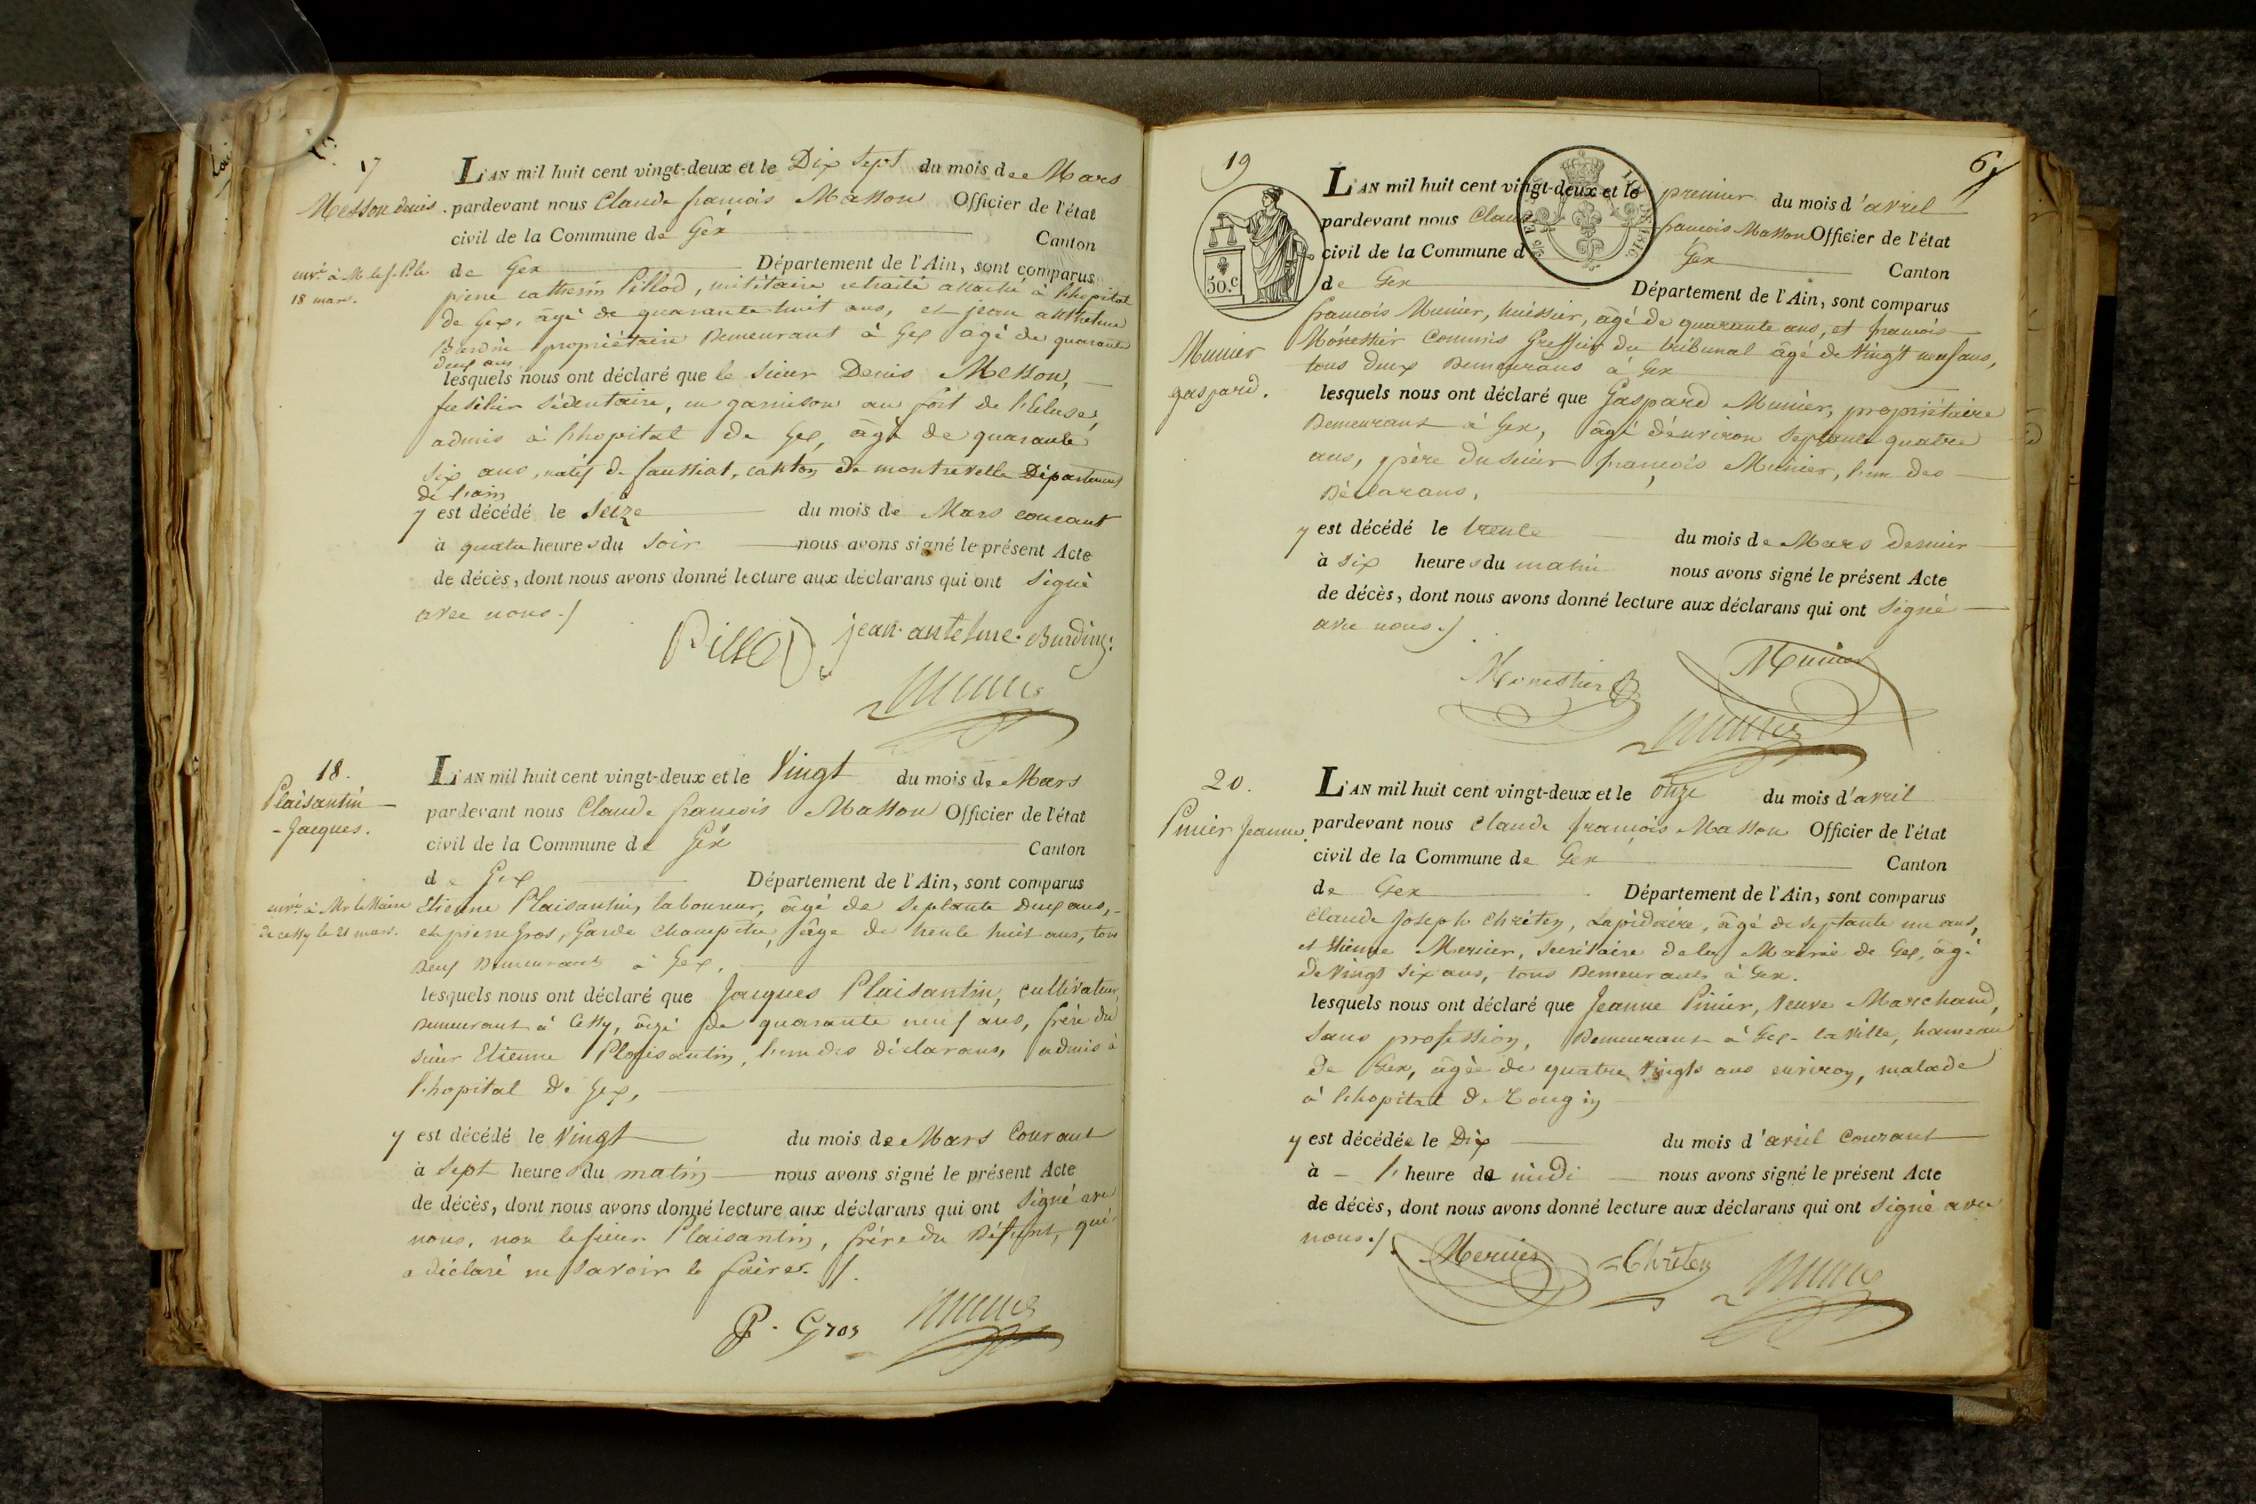 17
Messon denis.
envé à Mr le s. P. le
18 mars.
L'AN mil huit cent vingt-deux et le Dix sept du mois de Mars
pardevant nous Claude françois Masson Officier de l'état
civil de la Commune de Gex Canton
de Gex Département de l'Ain, sont comparus
pierre catherin Pillod, militaire retraité attaché à l'hopital
de Gex, âgé de quarante huit ans, et jean anthelme
Burdin propriétaire Demeurant à Gex âgé de quarante
deux ans
lesquels nous ont déclaré que le sieur Denis Messon,
fusilier sédentaire, en garnison au fort de l'écluse,
admis à l'hopital de Gex, âgé de quarante
six ans, natif de faussiat, canton de montrevelle Département
de l'ain
y est décédé le seize du mois de Mars courant
à quatre heures du soir nous avons signé le présent Acte
de décès, dont nous avons donné lecture aux déclarans qui ont signé
avec nous./
Pillod jean-antelme-Burdin
18.
Plaisantin
- Jacques.
envé à Mr le Maire
de cessy le 21 mars.
L'AN mil huit cent vingt-deux et le Vingt du mois de Mars
pardevant nous Claude françois Masson Officier de l'état
civil de la Commune de Gex Canton
de Gex Département de l'Ain, sont comparus
Etienne Plaisantin, laboureur, âgé de septante deux ans,
et pierre Gros, Garde champêtre, âgé de trente huit ans, tous
Deux Demeurant à Gex,
lesquels nous ont déclaré que Jacques Plaisantin, cultivateur,
Demeurant à Cessy, âgé de quarante neuf ans, frère du
sieur Etienne Plaisantin, l'un des déclarans, admis à
l'hopital de Gex,
y est décédé le Vingt du mois de Mars Courant
à sept heures du matin nous avons signé le présent Acte
de décès, dont nous avons donné lecture aux déclarans qui ont signé avec
nous, non le sieur Plaisantin, frère du Défunt, qui
a déclaré ne savoir le faire. /.
P. Gros
19
6
50. c
Munier
gaspard.
L'AN mil huit cent vingt-deux et le premier du mois d'avril
pardevant nous Claude françois Masson Officier de l'état
civil de la Commune d Gex Canton
de Gex Département de l'Ain, sont comparus
françois Munier, huissier, âgé de quarante ans, et françois
Monestier Commis Greffier du tribunal âgé de Vingt neuf ans,
tous deux Demeurans à Gex
lesquels nous ont déclaré que Gaspard Munier, propriétaire
Demeurant à Gex, âgé d'environ septante quatre
ans, père du sieur françois Munier, l'un des
Déclarans,
y est décédé le trente du mois de Mars dernier
à six heures du matin nous avons signé le présent Acte
de décès, dont nous avons donné lecture aux déclarans qui ont signé
avec nous./
Monestier Munier
20.
Pinier Jeanne.
L'AN mil huit cent vingt-deux et le onze du mois d'avril
pardevant nous Claude françois Masson Officier de l'état
civil de la Commune de Gex Canton
de Gex Département de l'Ain, sont comparus
Claude Joseph Chrétien, Lapidaire, âgé de septante un ans,
et Etienne Mercier, secrétaire de la Mairie de Gex, âgé
de Vingt six ans, tous Demeurants à Gex.
lesquels nous ont déclaré que Jeanne Pinier, Veuve Marchand,
sans profession, Demeurant à Gex-la ville, hameau
de Gex, âgée de quatre Vingts ans environ, malade
à l'hopital de Tougin
y est décédée le Dix du mois d'avril Courant
à - l'heure de midi nous avons signé le présent Acte
de décès, dont nous avons donné lecture aux déclarans qui ont signé avec
nous./.
Mercier Chrétien